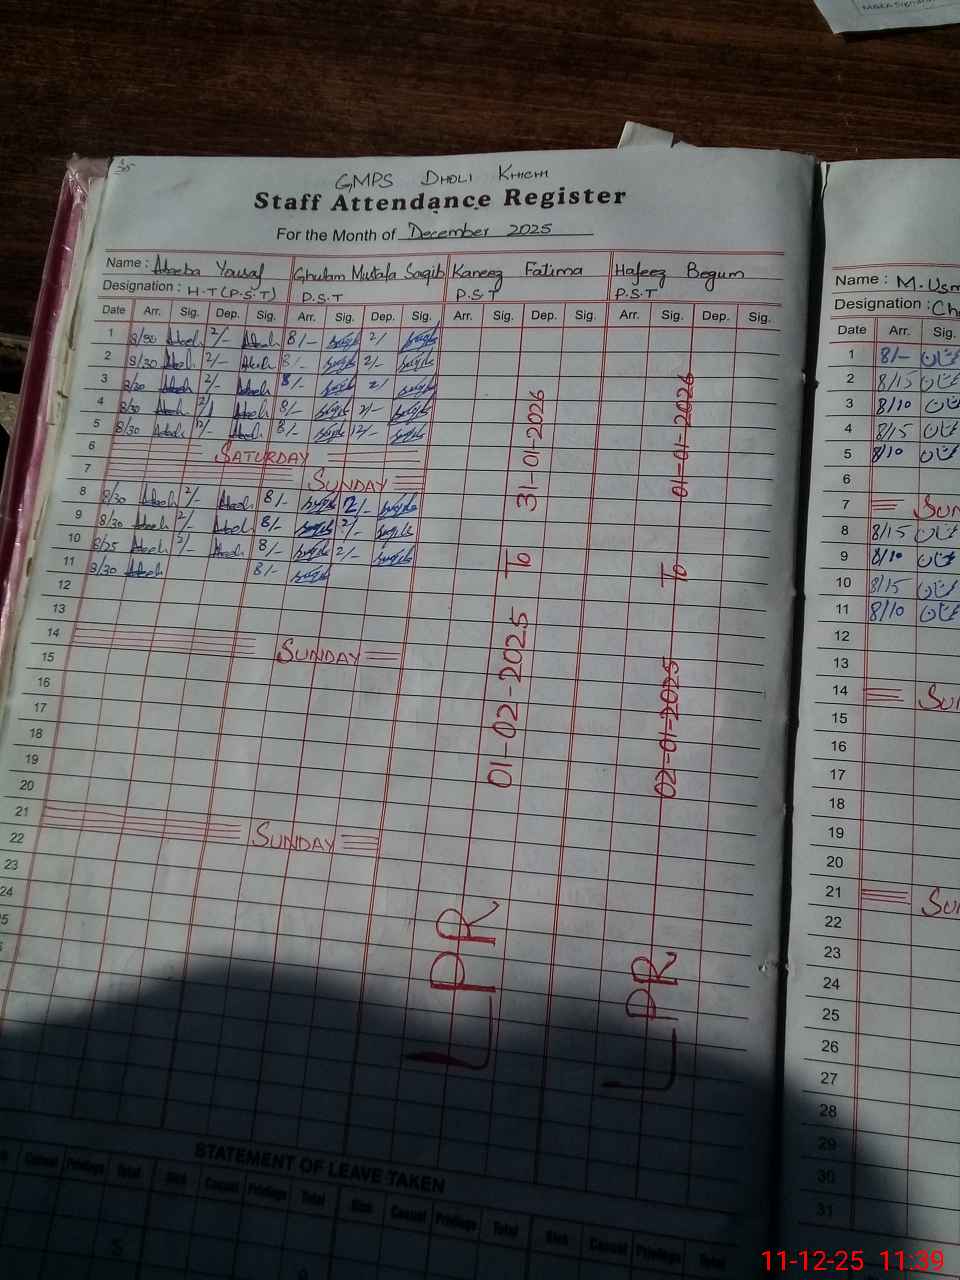 GMPS DHOLI KHICHI
Staff Attendance Register
For the Month of December 2025
Name : Adeeba Yousaf Ghulam Mustafa Saqib Kaneez Fatima Hafeez Begum
Designation : H.T (P.S.T) P.S.T P.S.T P.S.T
Date Arr. Sig. Dep. Sig. Arr. Sig. Dep. Sig. Arr. Sig. Dep. Sig. Arr. Sig. Dep. Sig.
1 8/30 2/- 8/- 2/
2 8/30 2/- 8/- 2/-
3 8/30 2/- 8/- 2/
4 8/30 2/ 8/- 2/-
5 8/30 12/- 8/- 12/-
6 SATURDAY
7 SUNDAY
8 8/30 2/- 8/- 2/-
9 8/30 2/- 8/- 2/-
10 8/25 2/- 8/- 2/-
11 8/30 8/-
12
13
14 SUNDAY
15
16
17
18
19
20
21 SUNDAY
22
23
24
LPR 01-02-2025 To 31-01-2026
LPR 02-01-2025 To 01-01-2026
STATEMENT OF LEAVE TAKEN
Casual Privilege Total Sick Casual Privilege Total Sick Casual Privilege Total Sick Casual Privilege Total
Name : M. Usm
Designation : Ch
Date Arr. Sig.
1 8/- عثمان
2 8/15 عثمان
3 8/10 عثمان
4 8/15 عثمان
5 8/10 عثمان
6
7 SUN
8 8/15 عثمان
9 8/10 عثمان
10 8/15 عثمان
11 8/10 عثمان
12
13
14 SUN
15
16
17
18
19
20
21 SUN
22
23
24
25
26
27
28
29
30
31
11-12-25 11:39